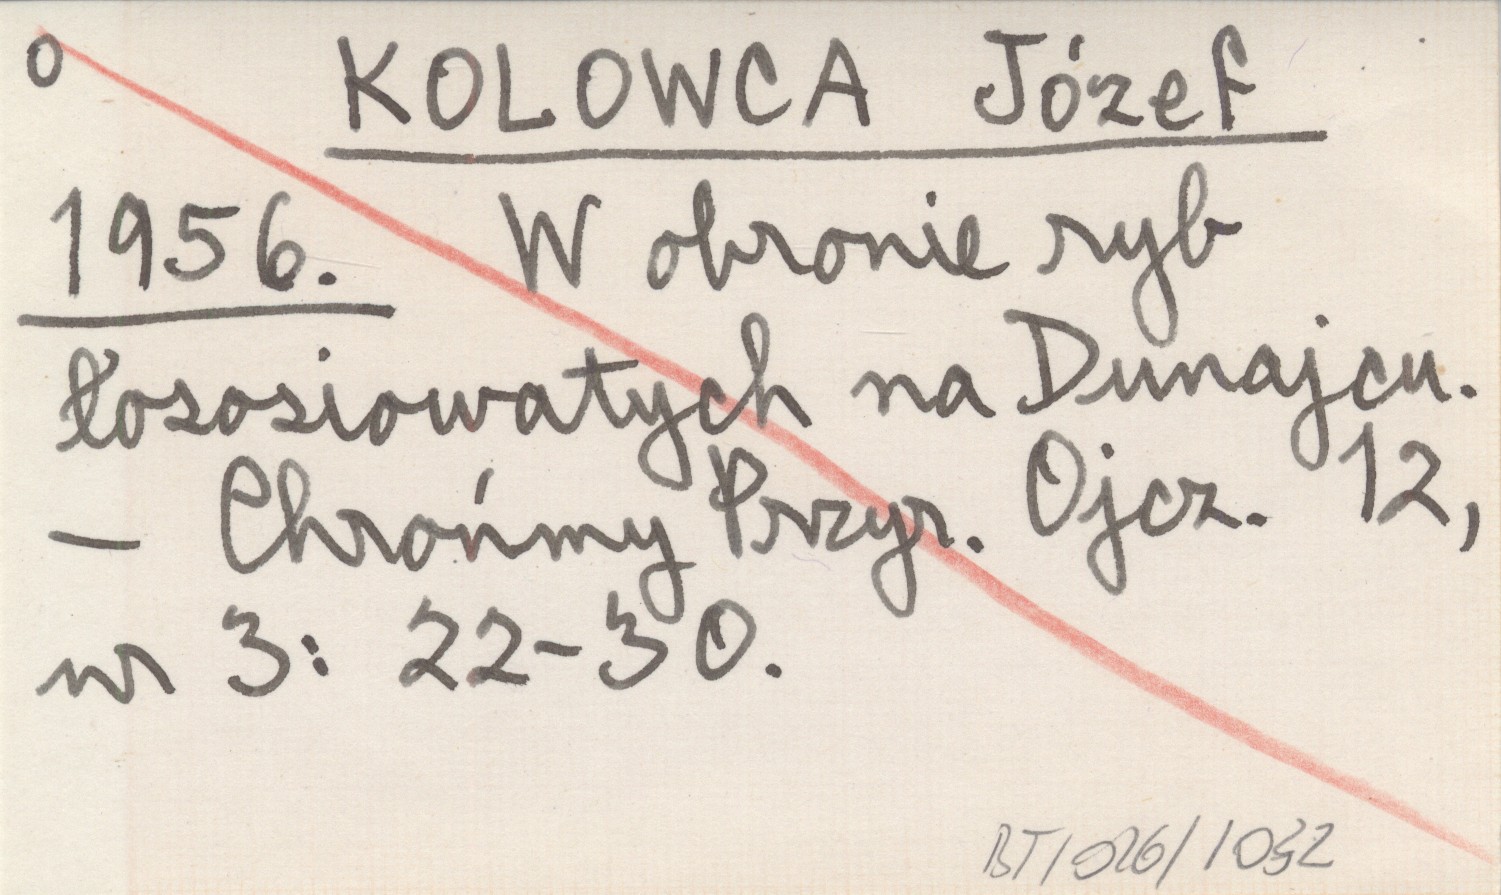 o KOLOWCA Józef
1956. W obronie ryb
łososiowatych na Dunajcu.
— Chrońmy Przyr. Ojcz. 12,
nr 3: 22-30.
BT/026/1032